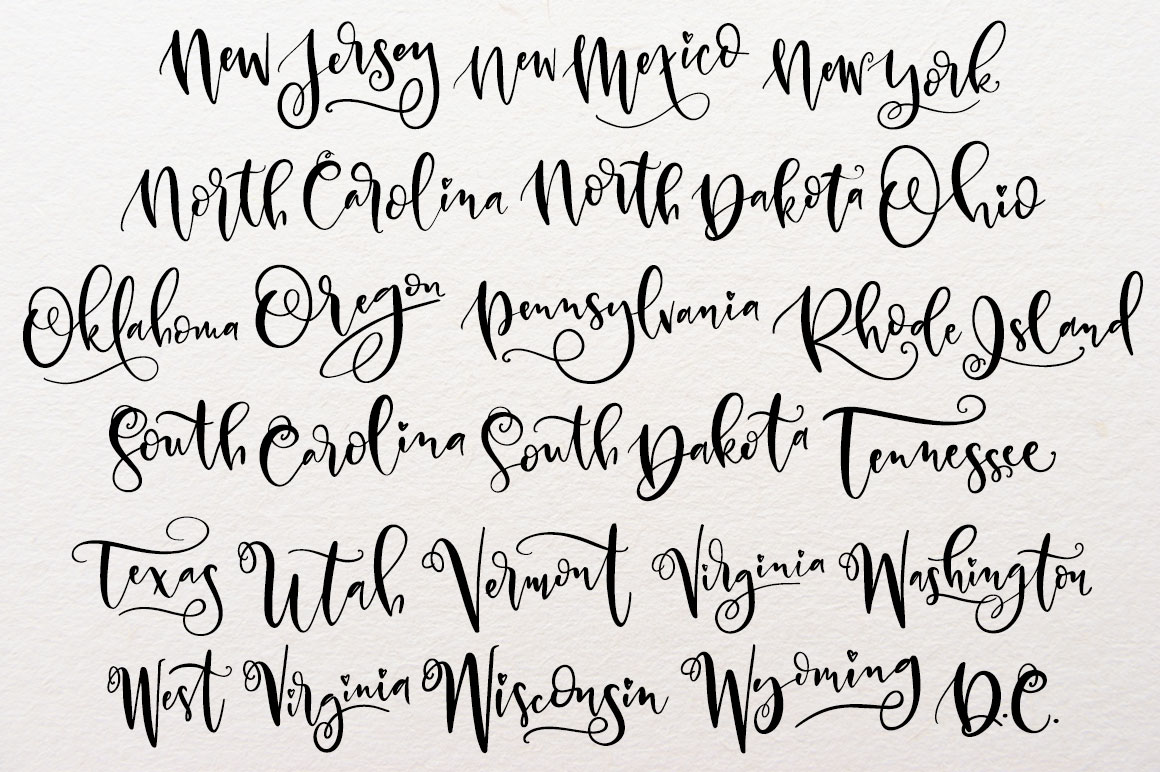 New Jersey New Mexico New York
North Carolina North Dakota Ohio
Oklahoma Oregon Pennsylvania Rhode Island
South Carolina South Dakota Tennessee
Texas Utah Vermont Virginia Washington
West Virginia Wisconsin Wyoming D.C.